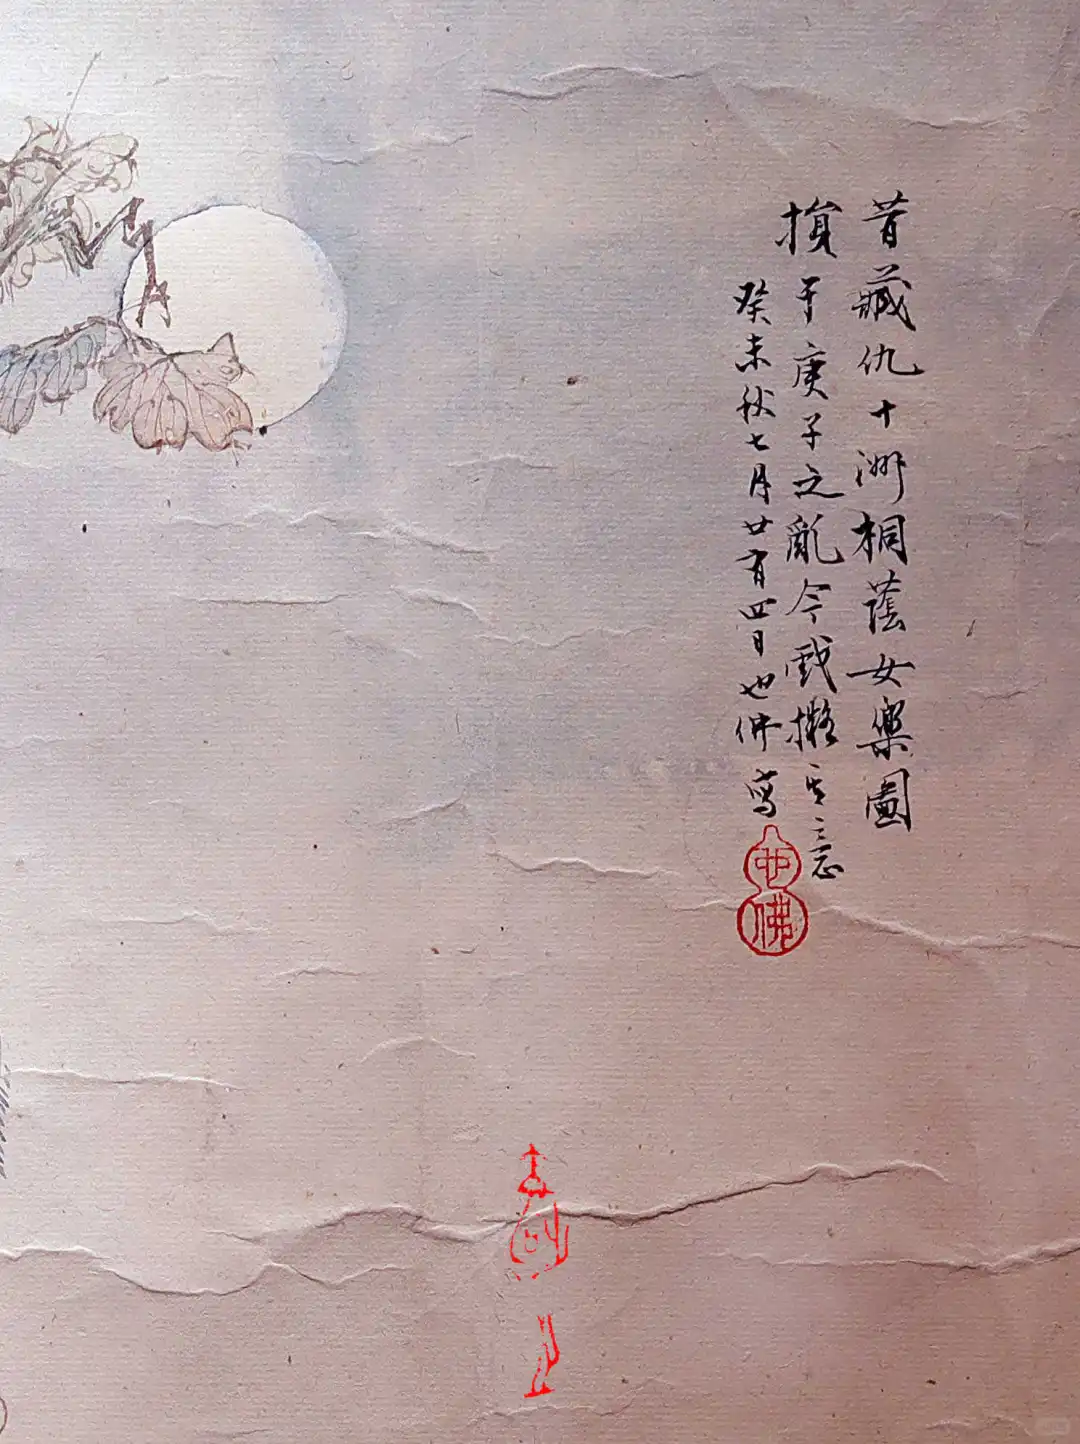 昔藏仇十洲桐蔭女樂圖
損于庚子之亂今戲擬其意
癸未秋七月廿有四日也佛寫
也佛